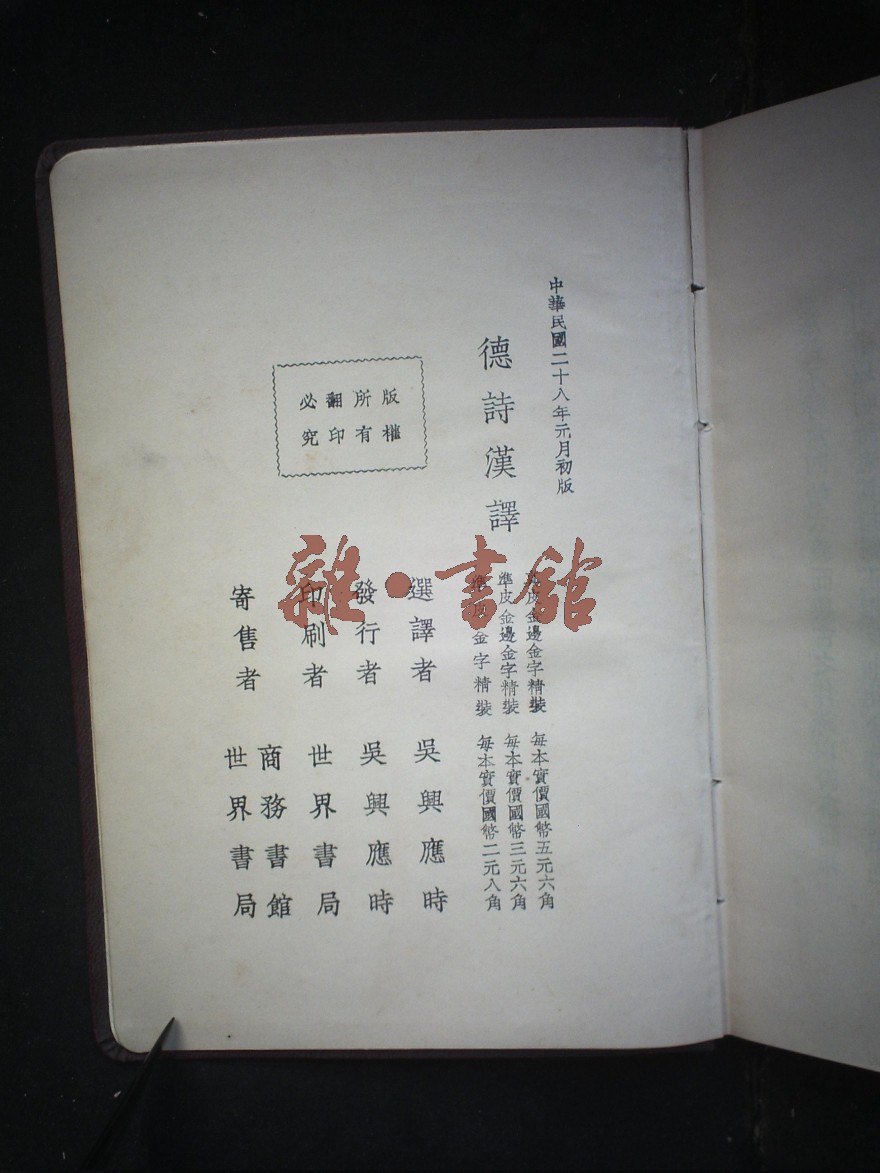 中華民國二十八年元月初版
德詩漢譯
皮金邊金字精裝 每本實價國幣五元六角
準皮金邊金字精裝 每本實價國幣三元六角
金字精裝 每本實價國幣二元八角
版權所有
翻印必究
選譯者 吳興應時
發行者 吳興應時
印刷者 世界書局
寄售者 商務書館
世界書局
雜·書館